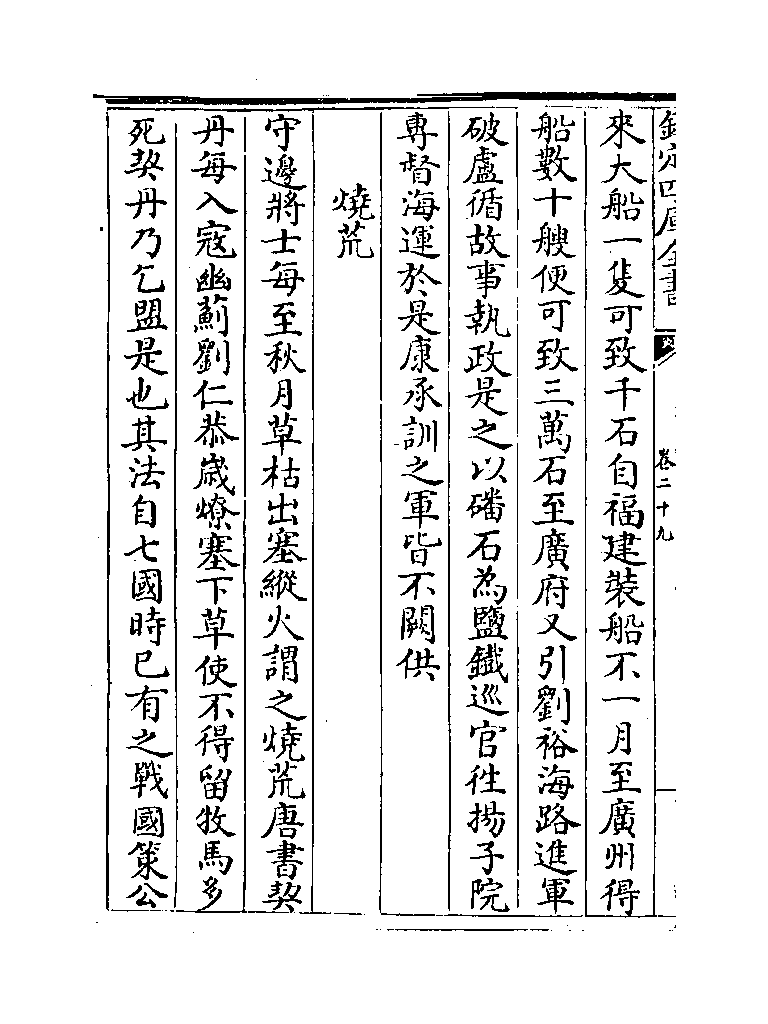 欽定四庫全書
卷二十九
來大船一隻可致千石自福建裝船不一月至廣州得
船數十艘便可致三萬石至廣府又引劉裕海路進軍
破盧循故事執政是之以磻石為鹽鐵巡官往揚子院
專督海運於是康承訓之軍皆不闕供
燒荒
守邊將士每至秋月草枯出塞縱火謂之燒荒唐書契
丹每入寇幽薊劉仁恭歲燎塞下草使不得留牧馬多
死契丹乃乞盟是也其法自七國時已有之戰國策公